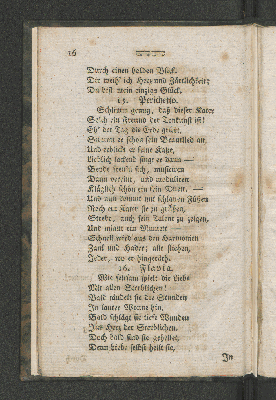 16
Durch einen holden Blick.
Dir weih' ich Herz und Zärtlichkeit;
Du bist mein einzigs Glück.
15. Perichetto.
Schlimm genug, daß dieser Kater
Solch ein Freund der Tonkunst ist!
Eh' der Tag die Erde grüßt,
er schon sein Brautlied an,
Und erblickt er seine Katze,
Lieblich lockend singt er dann —
Beyde freun sich, musiciren
Dann vereint, und moduliren
Kläglich schön ein sein Duett. —
Und nun kommt mit schlauen Füßen
Noch ein Kater sie zu grüßen,
Strebt, auch sein Talent zu zeigen,
Und nimmt ein Menuett —
Schnell wird aus den Harmonien
Zank und Hader; alle fliehen,
Jeder, wo er hingeräth.
16. Flavia.
Wie seltsam spielt die Liebe
Mit allen Sterblichen!
Bald tändelt sie die Stunden
In lauter Wonne hin,
Bald schlägt sie tiefe Wunden
Ins Herz der Sterblichen.
Doch bald sind sie geheilet,
Denn Liebe selbst heilt sie,
In